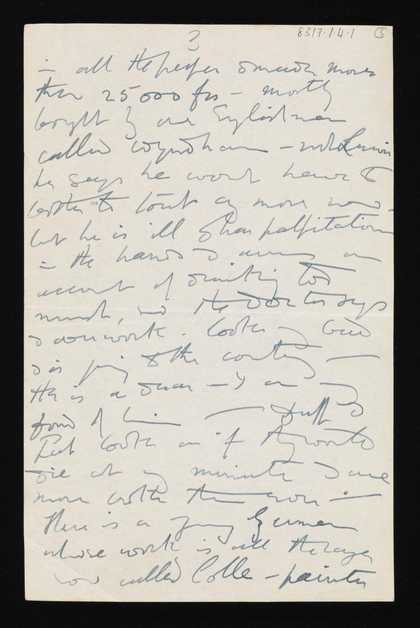 8317.1.4.1
3
in all the papers & made more
than 25000 frs – mostly
bought by one Englishman
called Wyndham – not Lewis
he says he wont have to
bother to tout any more now –
but he is ill & has palpitations
in the hands & arms on
account of drinking too
much, and the Doctor says
& overwork. looks bad
& is going to the country –
He is a dear – I am
fond of him –
look as if they would
die at any minute &
more than ever –
There is a young German
whose work is all the rage
now called Colle – paints